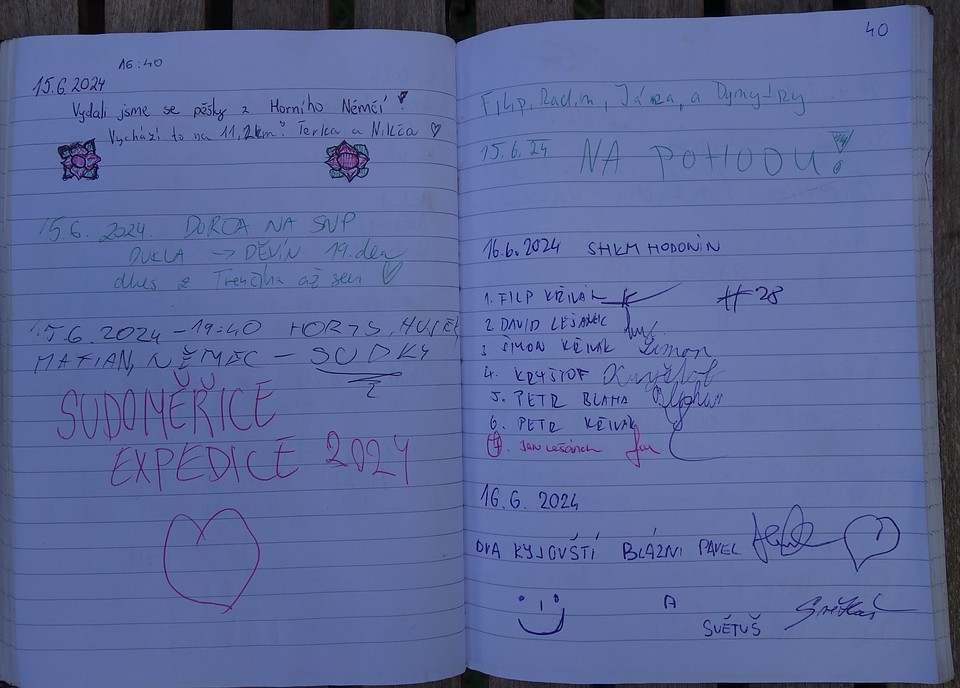 16:40
15.6.2024
Vydali jsme se pěšky z Horního Němčí!
Vychází to na 11,2km! Terka a Nikča ♡
15.6. 2024. DORČA NA SNP
DUKLA → DĚVÍN 19.den
dnes z Trenčína až sem ♡
15.6.2024 – 19:40 HORYS,
NĚMEC – SUDKY
SUDOMĚŘICE
EXPEDICE 2024
40
Filip, Radim, Jára, a Dymytry
15.6.24 NA POHODU!
16.6.2024 SHKM HODONÍN
1. FILIP KŘIVÁK #28
2. DAVID LEŠANEK
3. ŠIMON KŘIVÁK Šimon
4. KRYŠTOF Kryštof
5. PETR BLAHA
6. PETR KŘIVÁK
7. JAN
16.6. 2024
DVA KYJOVŠTÍ BLÁZNI PAVEL
A
SVĚTUŠ